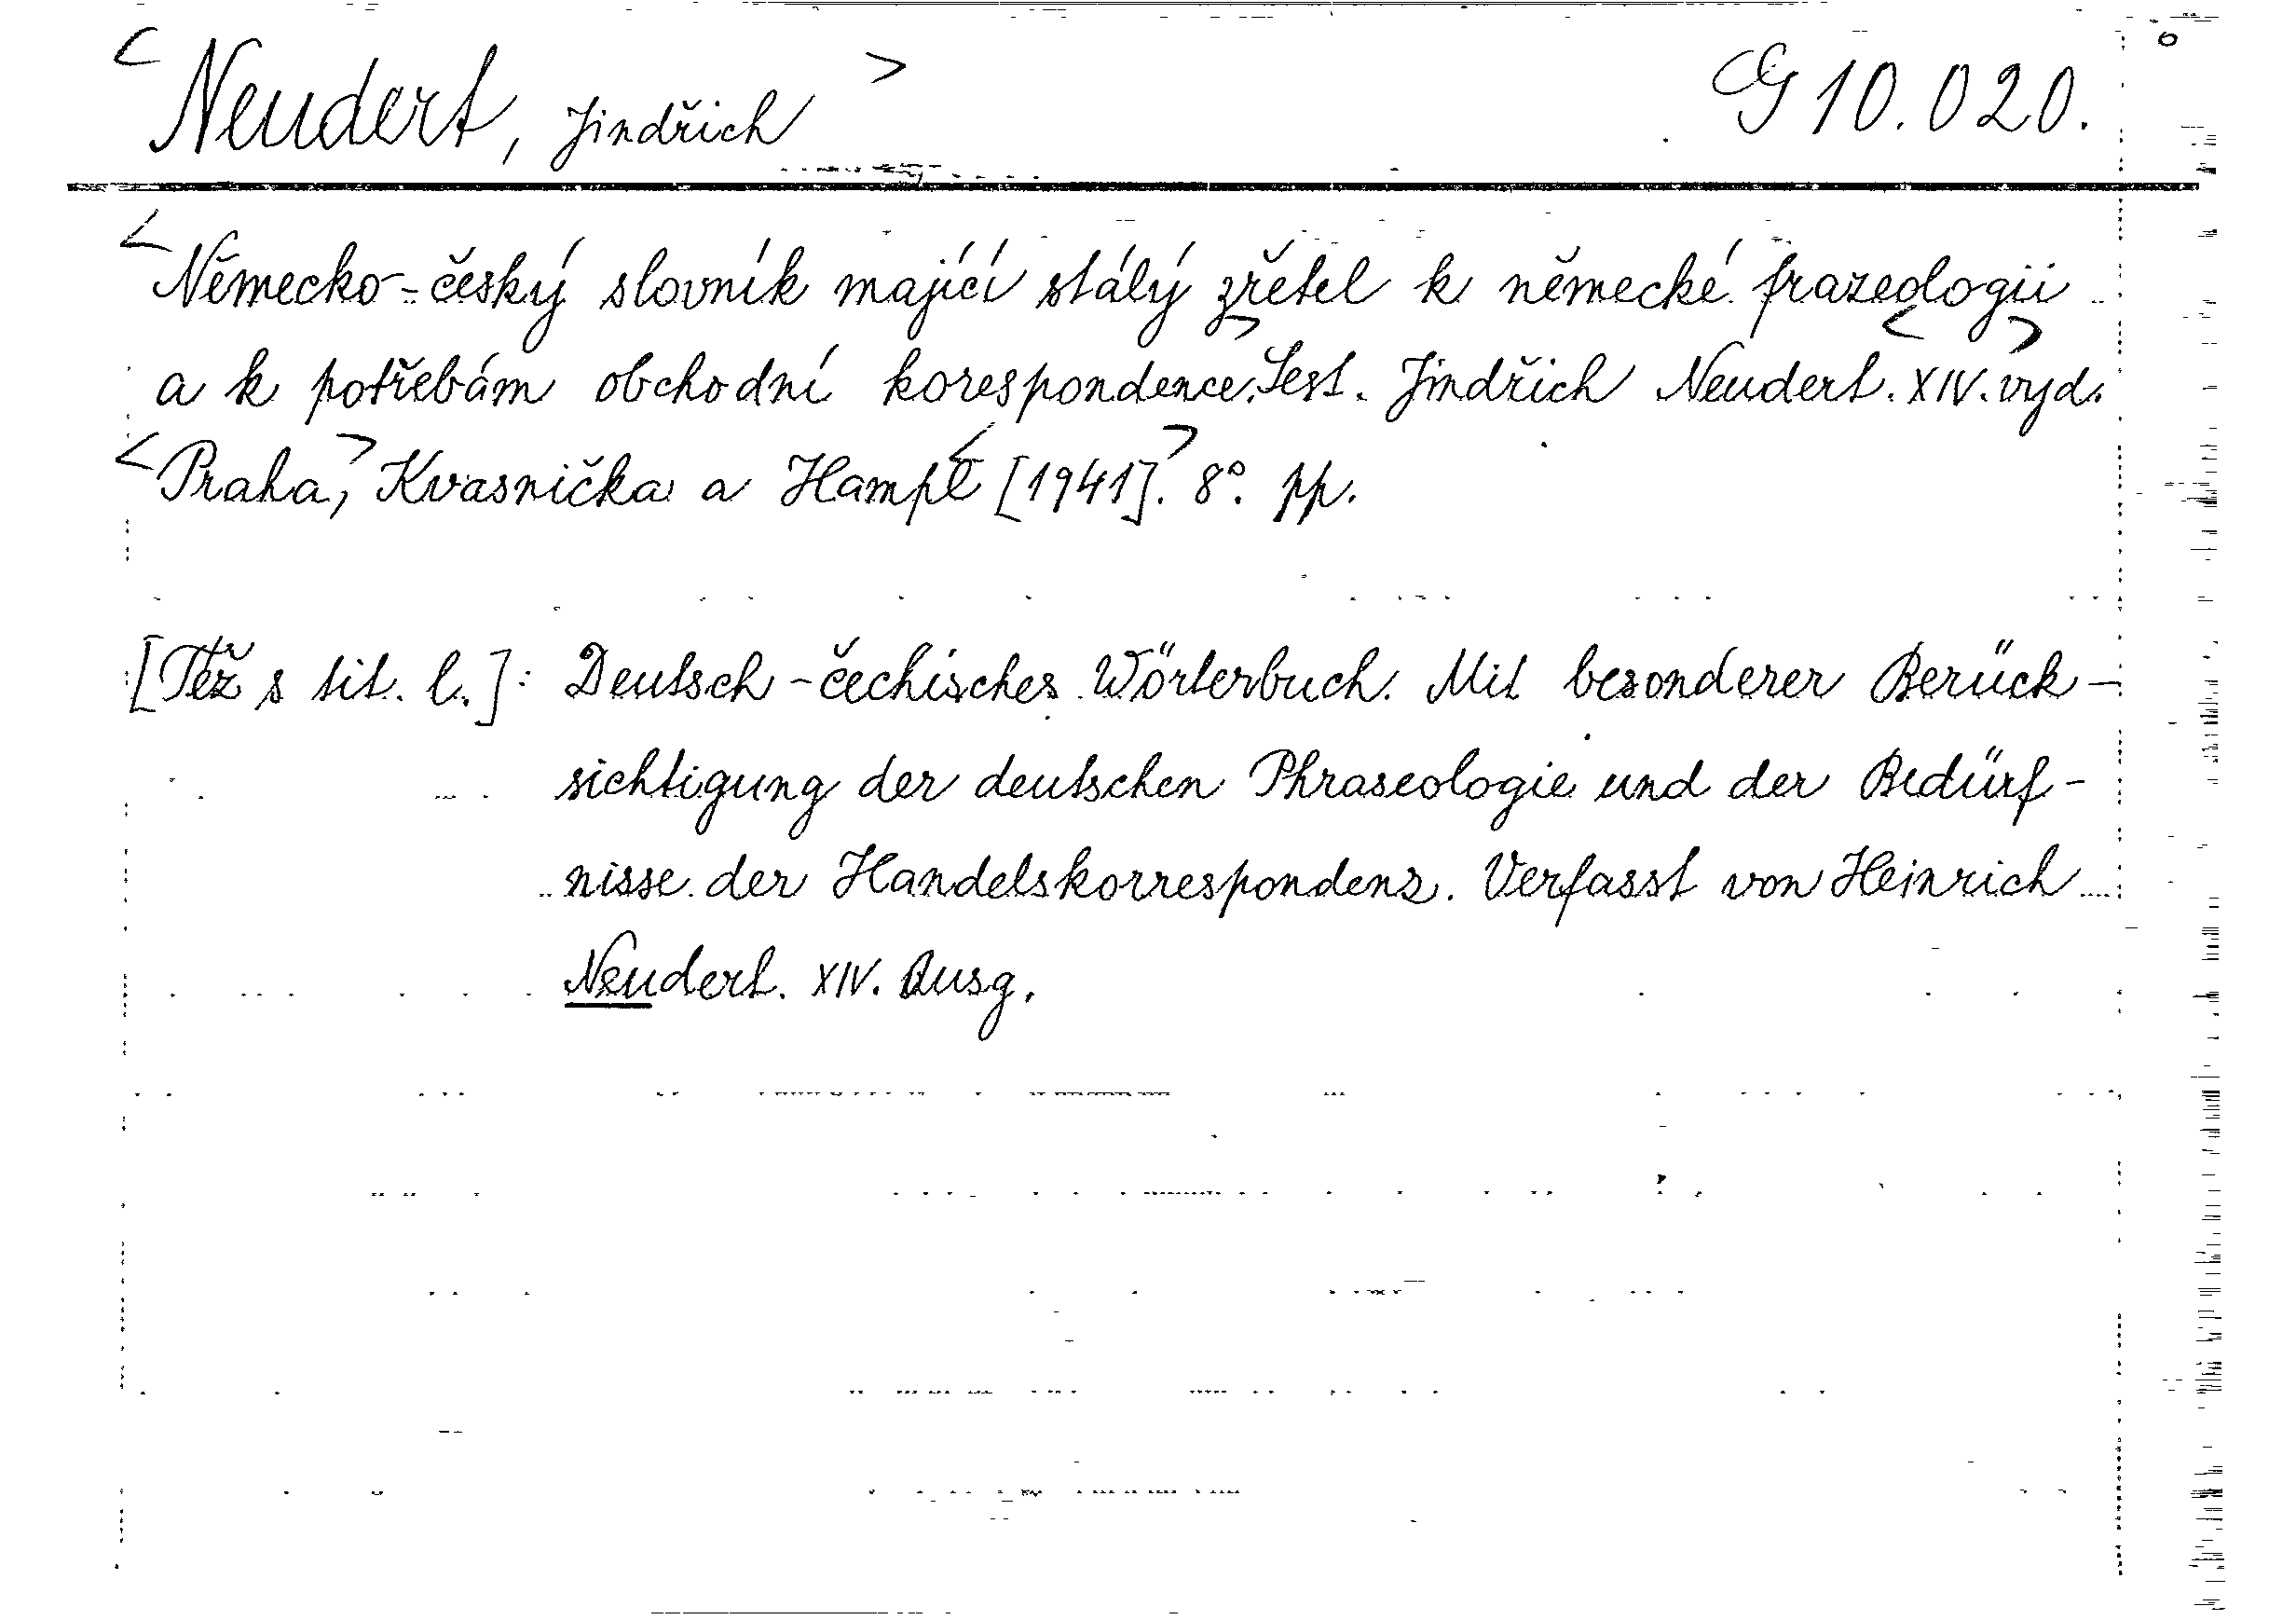 <Neudert, Jindřich> G 10.020.
<Německo-český slovník mající stálý zřetel k německé frazeologii
a k potřebám obchodní korespondence.> Sest. Jindřich Neudert. <XIV. vyd.>
<Praha,> Kvasnička a Hampl <[1941].> 8°. pp.
[Též s tit. l.]: Deutsch-čechisches Wörterbuch. Mit besonderer Berück-
sichtigung der deutschen Phraseologie und der Bedürf-
nisse der Handelskorrespondenz. Verfasst von Heinrich
Neudert. XIV. Ausg.